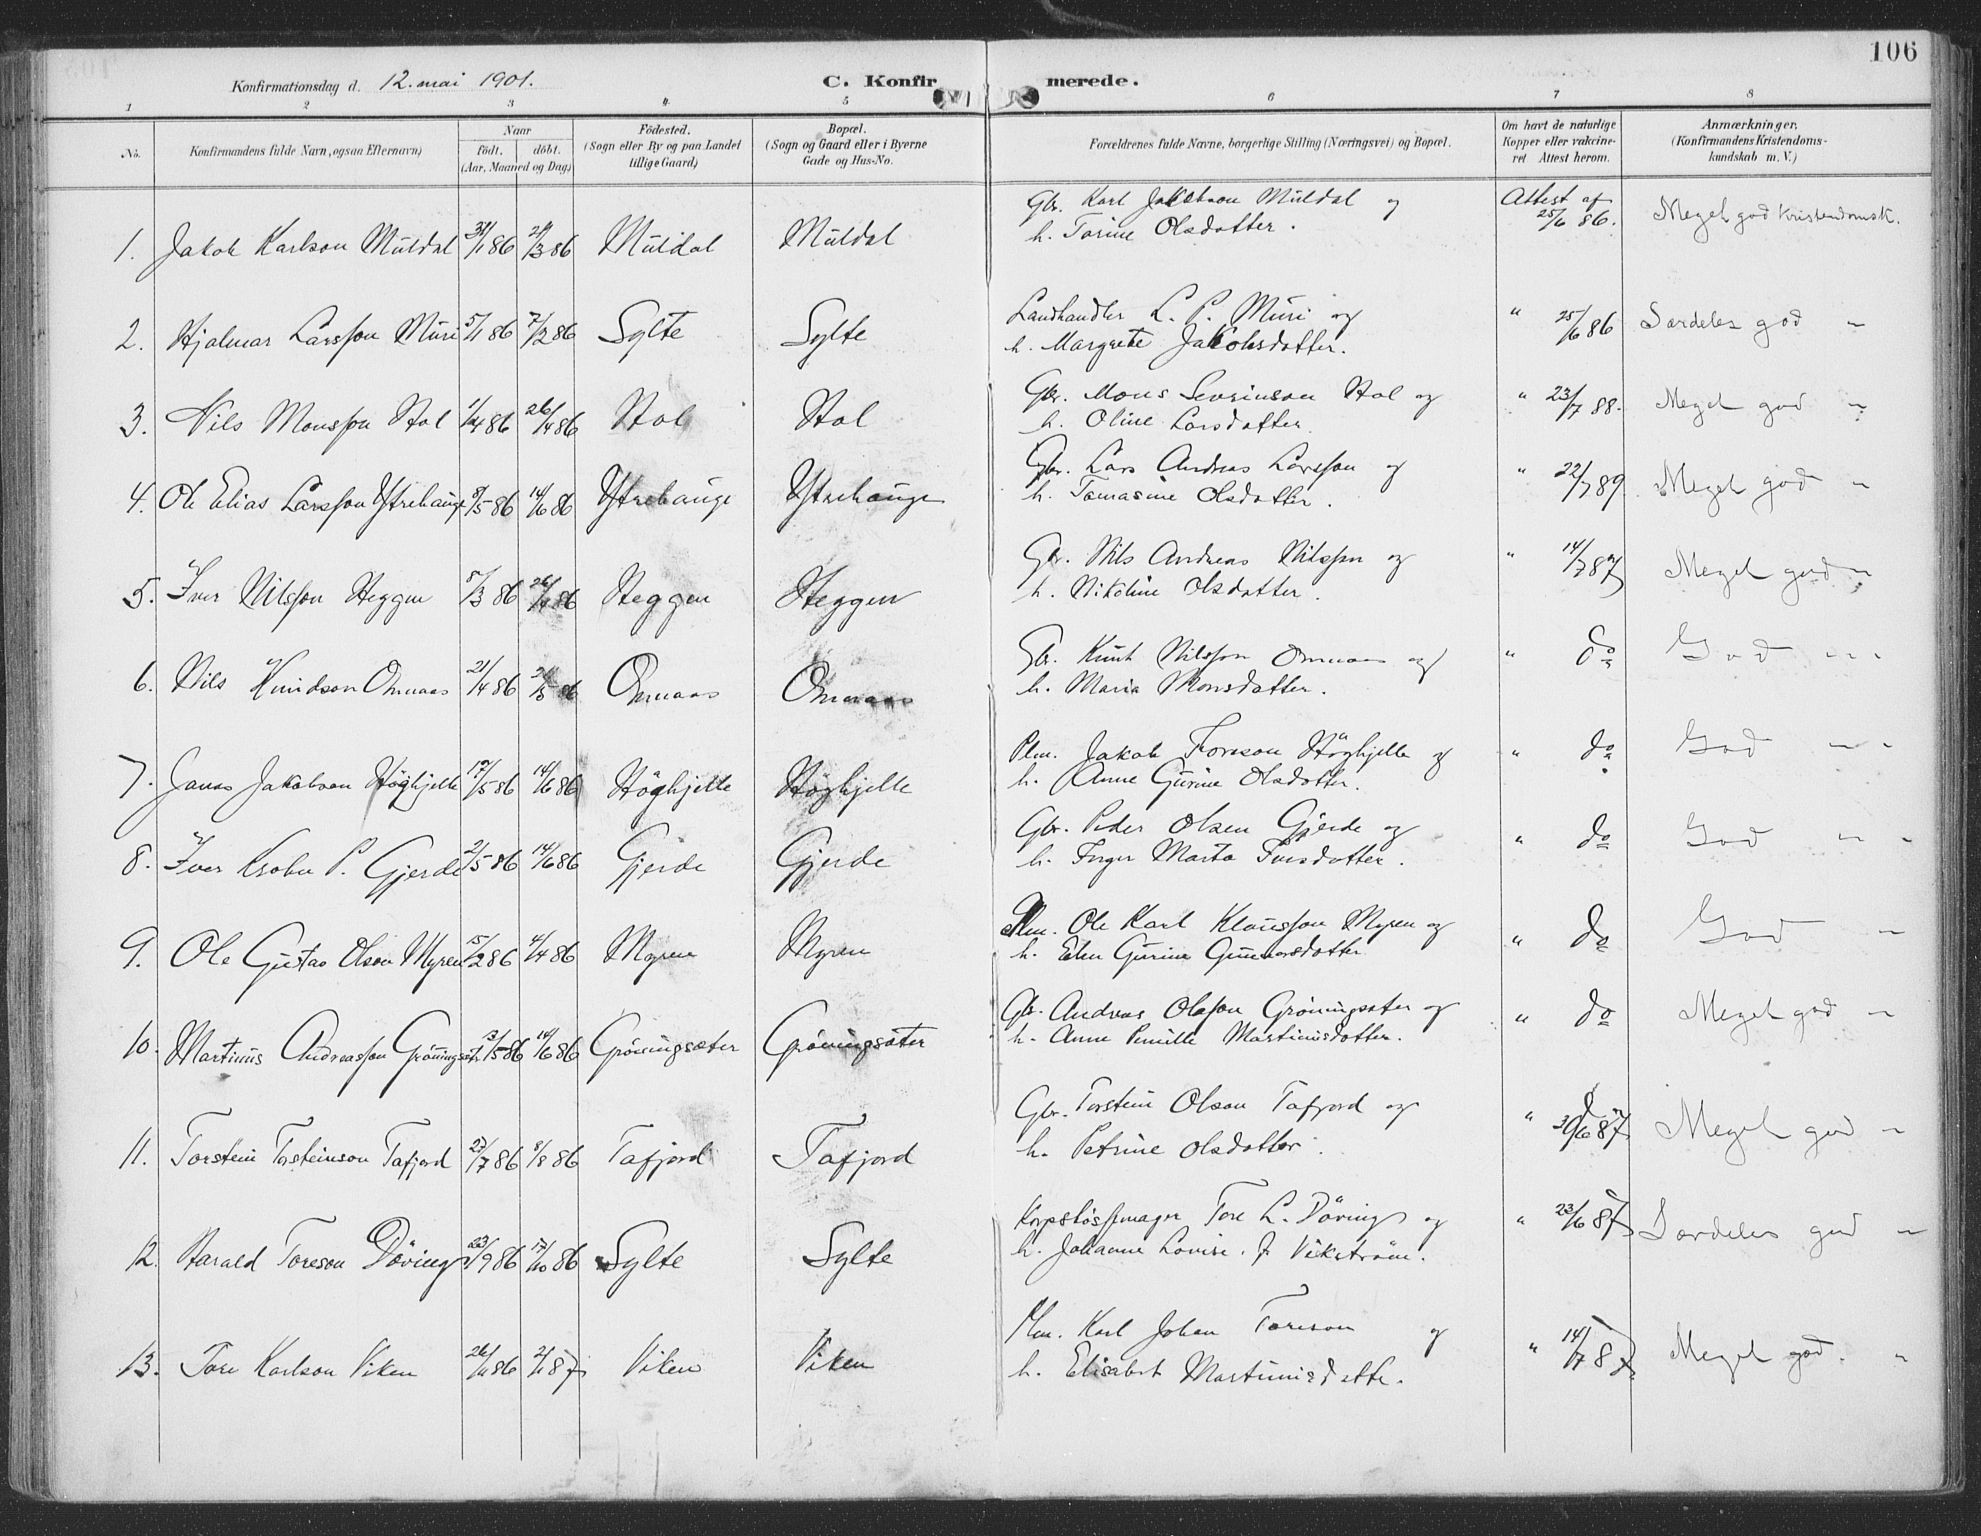 106
Konfirmationsdag d. 12. mai 1901. C. Konfirmerede.
1 2 3 4 5 6 7 8
No. Konfirmandens fulde Navn, ogsaa Efternavn) Naar födt. döbt. (Aar, Maaned og Dag) Födested. (Sogn eller By og paa Landet tillige Gaard.) Bopæl. (Sogn og Gaard eller i Byerne Gade og Hus-No. Forældrenes fulde Navne, borgerlige Stilling (Næringsvei) og Bopæl. Om havt de naturlige Kopper eller vakcineret Attest herom. Anmærkninger, (Konfirmandens Kristendomskundskab m. V.)
Gbr. Karl Jakobson Muldal og Attest af
1. Jakob Karlson Muldal 31/1 86 21/3 86 Muldal Muldal h. Torine Olsdatter. 25/6 86. Meget god Kristendomsk.
Landhandler L. P. Muri og
2. Hjalmar Larsson Muri 5/1 86 7/2 86 Sylte Sylte h. Margrete Jakobsdatter. " 25/6 86 Særdeles god "
Gbr. Mons Sevrinson Stol og
3. Nils Monsson Stol 1/4 86 26/4 86 Stol Stol h. Oline Larsdatter " 23/7 88. Meget god "
Gbr. Lars Andreas Larsson og
4. Ole Elias Larsson Ystrehauge 9/5 86 14/6 86 Ystrehauge Ystrehauge h. Tomasine Olsdatter. " 22/7 89 Meget god "
Gbr. Nils Andreas Nilsson og
5. Iver Nilsson Heggen 5/3 86 26/4 86 Heggen Heggen h. Nikoline Olsdatter. " 14/7 87 Meget god "
Gbr. Knut Nilsson Onmaas og
6. Nils Knudson Onmaas 2/4 86 Onmaas Onmaas h. Maria Monsdatter. " do God " "
Plm. Jakob Toreson Höghjelle og
7. Jonas Jakobson Höghjelle 17/5 86 14/6 86 Höghjelle Höghjelle h. Anne Gurine Olsdatter. " do God " "
Gbr. Peder Olsen Gjerde og
8. Iver P. Gjerde 2/5 86 14/6 86 Gjerde Gjerde h. Inger Marta Iversdatter. " do God " "
Plm. Ole Karl Klausson Myren og
9. Ole Gustav Olson Myren 15/2 86 4/4 86 Myren Myren h. Elen Gurine Gunnarsdatter " do God "
Gbr. Andreas Olsson Gröningsæter og
10. Martinus Andreasson Gröningsæt. 3/5 86 14/6 86 Gröningsæter Gröningsæter h. Anne Pernille Martinusdatter. " do Meget god "
Gbr. Torstein Olson Tafjord og
11. Torstein Torsteinson Tafjord 23/7 86 8/8 86 Tafjord Tafjord h. Petrine Olsdatter. " 30/6 87 Meget god "
Tore L. Döving og
12. Harald Toreson Döving 23/9 86 17/10 86 Sylte Sylte h. Johanne Lovise. f. Vikström. " 23/6 87 Særdeles god "
Plm. Karl Johan Toreson og
13. Tore Karlson Viken 26/11 86 2/1 87 Viken Viken h. Elisabet Martinusdatte. " 14/7 87 Meget god. "